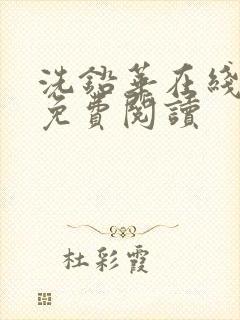 洗鉛華在綫
免費閱讀
杜彩霞